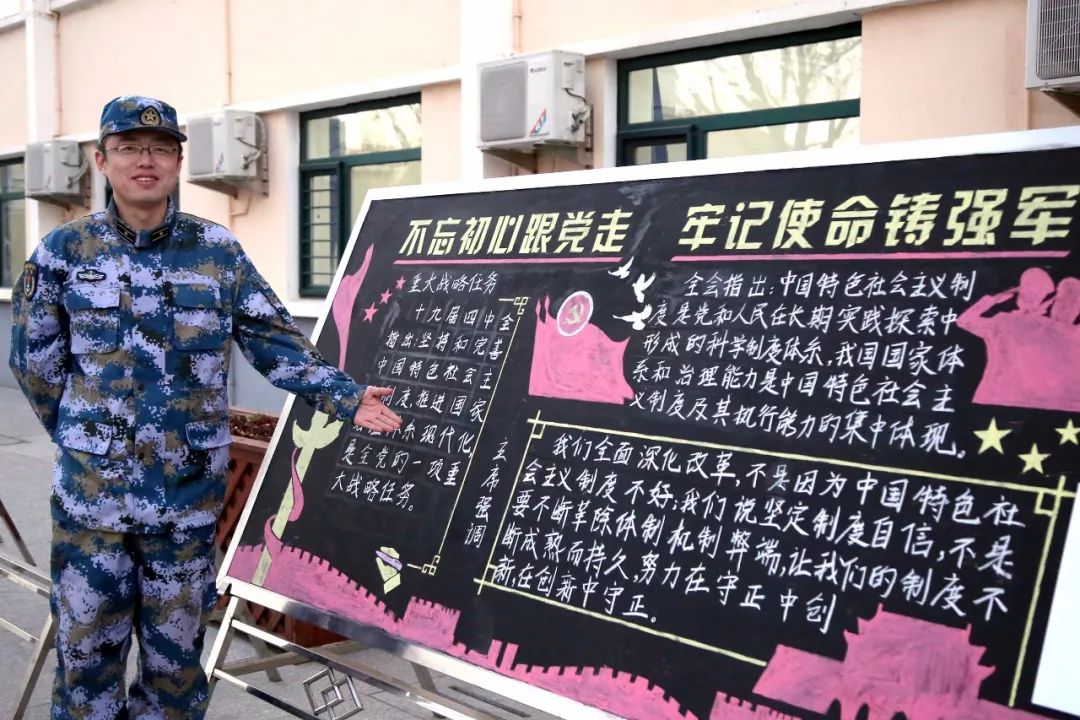 不忘初心跟党走 牢记使命铸强军
重大战略任务
十九届四中全
指出:坚持和完善
中国特色社会主
制度,推进国家
体系现代化,
是全党的一项重
大战略任务。
主席强调
全会指出:中国特色社会主义制
度是党和人民在长期实践探索中
形成的科学制度体系,我国国家体
系和治理能力是中国特色社会主
义制度及其执行能力的集中体现。
我们全面深化改革,不是因为中国特色社
会主义制度不好;我们说坚定制度自信,不是
要不断革除体制机制弊端,让我们的制度不
断成熟而持久,努力在守正中创
新,在创新中守正。